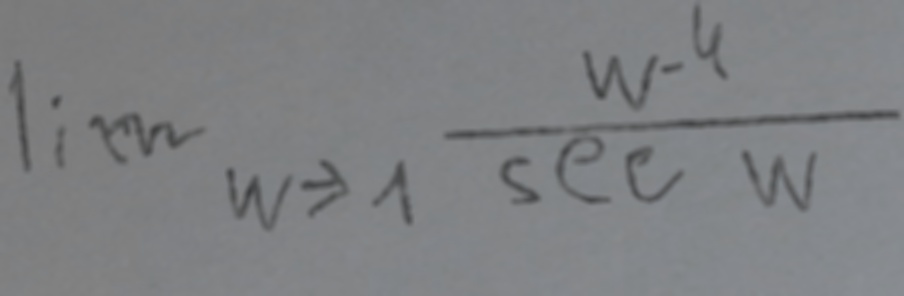 lim w→1 w-4 / sec w